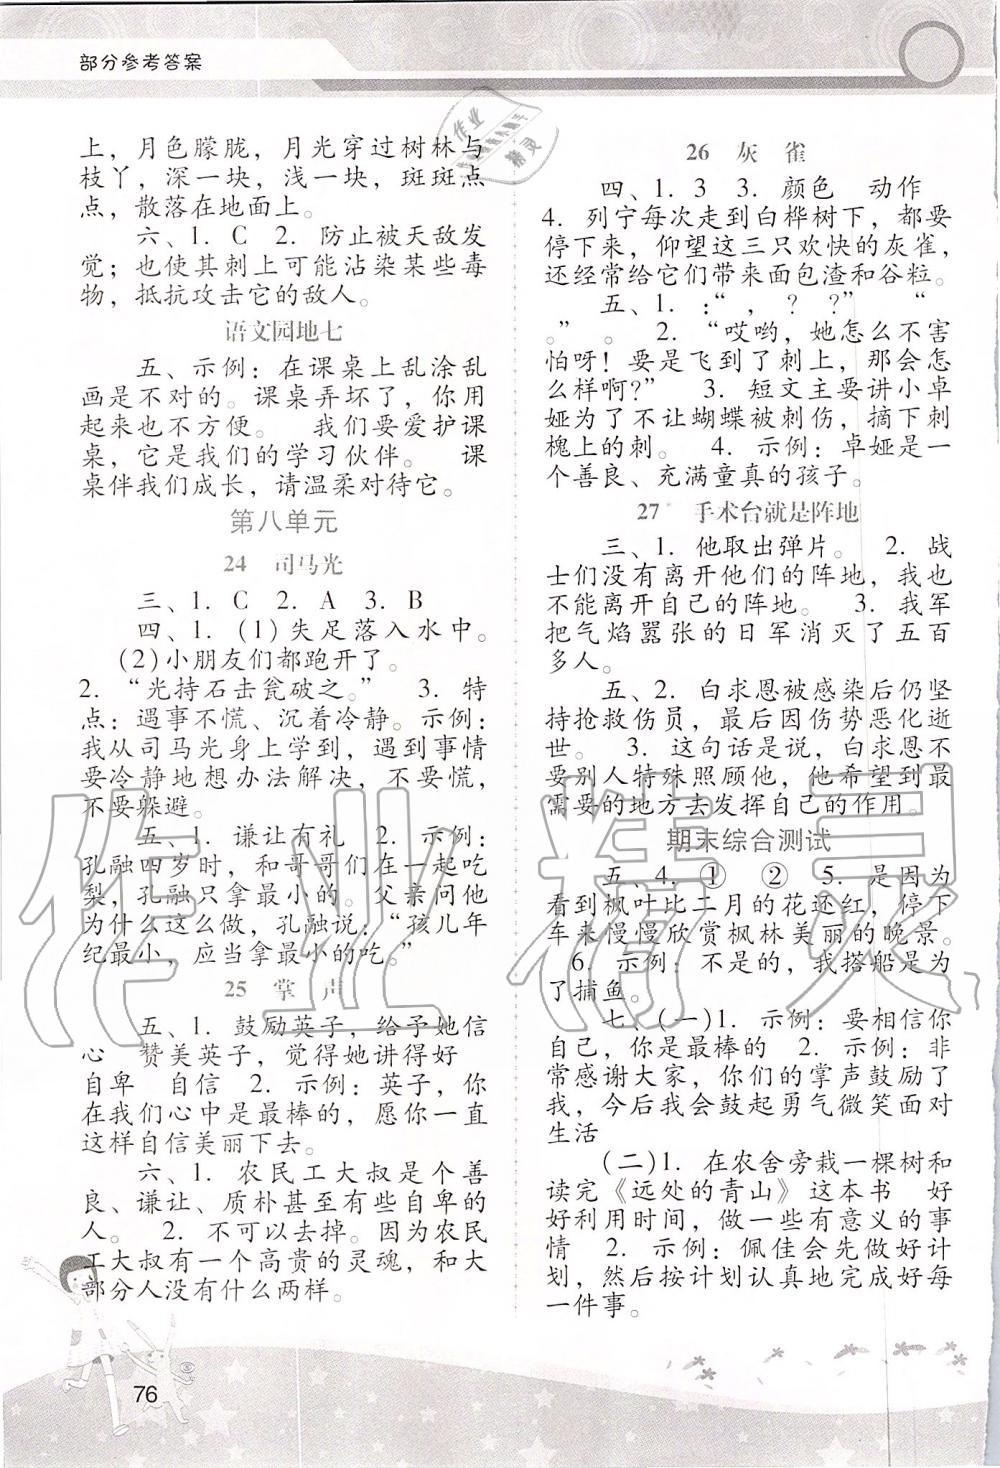 部分参考答案
上，月色朦胧，月光穿过树林与
枝丫，深一块，浅一块，斑斑点
点，散落在地面上。
六、1. C 2. 防止被天敌发
觉；也使其刺上可能沾染某些毒
物，抵抗攻击它的敌人。
语文园地七
五、示例：在课桌上乱涂乱
画是不对的。课桌弄坏了，你用
起来也不方便。 我们要爱护课
桌，它是我们的学习伙伴。 课
桌伴我们成长，请温柔对待它。
第八单元
24 司马光
三、1. C 2. A 3. B
四、1. (1)失足落入水中。
(2)小朋友们都跑开了。
2. “光持石击瓮破之。” 3. 特
点：遇事不慌、沉着冷静。示例：
我从司马光身上学到，遇到事情
要冷静地想办法解决，不要慌，
不要躲避。
五、1. 谦让有礼 2. 示例：
孔融四岁时，和哥哥们在一起吃
梨，孔融只拿最小的。父亲问他
为什么这么做，孔融说：“孩儿年
纪最小，应当拿最小的吃。”
25 掌声
五、1. 鼓励英子，给予她信
心 赞美英子，觉得她讲得好
自卑 自信 2. 示例：英子，你
在我们心中是最棒的，愿你一直
这样自信美丽下去。
六、1. 农民工大叔是个善
良、谦让、质朴甚至有些自卑的
人。 2. 不可以去掉。因为农民
工大叔有一个高贵的灵魂，和大
部分人没有什么两样。
26 灰雀
四、1. 3 3. 颜色 动作
4. 列宁每次走到白桦树下，都要
停下来，仰望这三只欢快的灰雀，
还经常给它们带来面包渣和谷粒。
五、1. ：“ ， ？ ？” “
。” 。 2. “哎哟，她怎么不害
怕呀！要是飞到了刺上，那会怎
么样啊？” 3. 短文主要讲小卓
娅为了不让蝴蝶被刺伤，摘下刺
槐上的刺。 4. 示例：卓娅是一
个善良、充满童真的孩子。
27 手术台就是阵地
三、1. 他取出弹片。 2. 战
士们没有离开他们的阵地，我也
不能离开自己的阵地。 3. 我军
把气焰嚣张的日军消灭了五百
多人。
五、2. 白求恩被感染后仍坚
持抢救伤员，最后因伤势恶化逝
世。 3. 这句话是说，白求恩不
要别人特殊照顾他，他希望到最
需要的地方去发挥自己的作用。
期末综合测试
五、4. ① ② 5. 是因为
看到枫叶比二月的花还红，停下
车来慢慢欣赏枫林美丽的晚景。
6. 示例：不是的，我搭船是为
了捕鱼。
七、(一)1. 示例：要相信你
自己，你是最棒的 2. 示例：非
常感谢大家，你们的掌声鼓励了
我，今后我会鼓起勇气微笑面对
生活
(二)1. 在农舍旁栽一棵树和
读完《远处的青山》这本书 好
好利用时间，做一些有意义的事
情 2. 示例：佩佳会先做好计
划，然后按计划认真地完成好每
一件事。
76
作业精灵